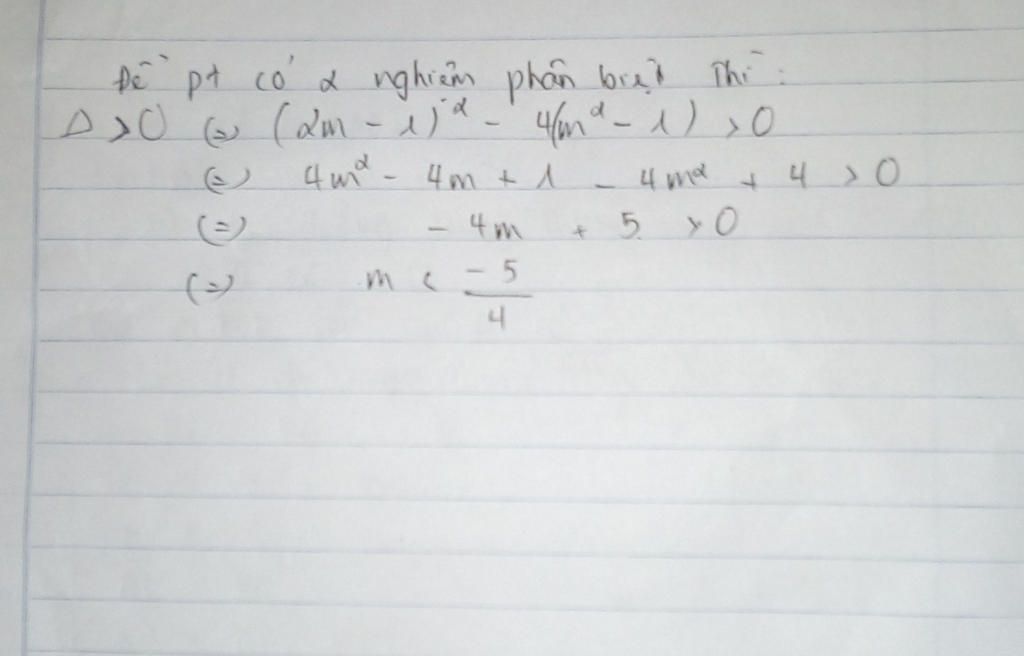 Để pt có 2 nghiệm phân biệt thì:
Δ > 0 (=) (2m - 1)² - 4(m² - 1) > 0
(=) 4m² - 4m + 1 - 4m² + 4 > 0
(=) - 4m + 5 > 0
(=) m < -5/4